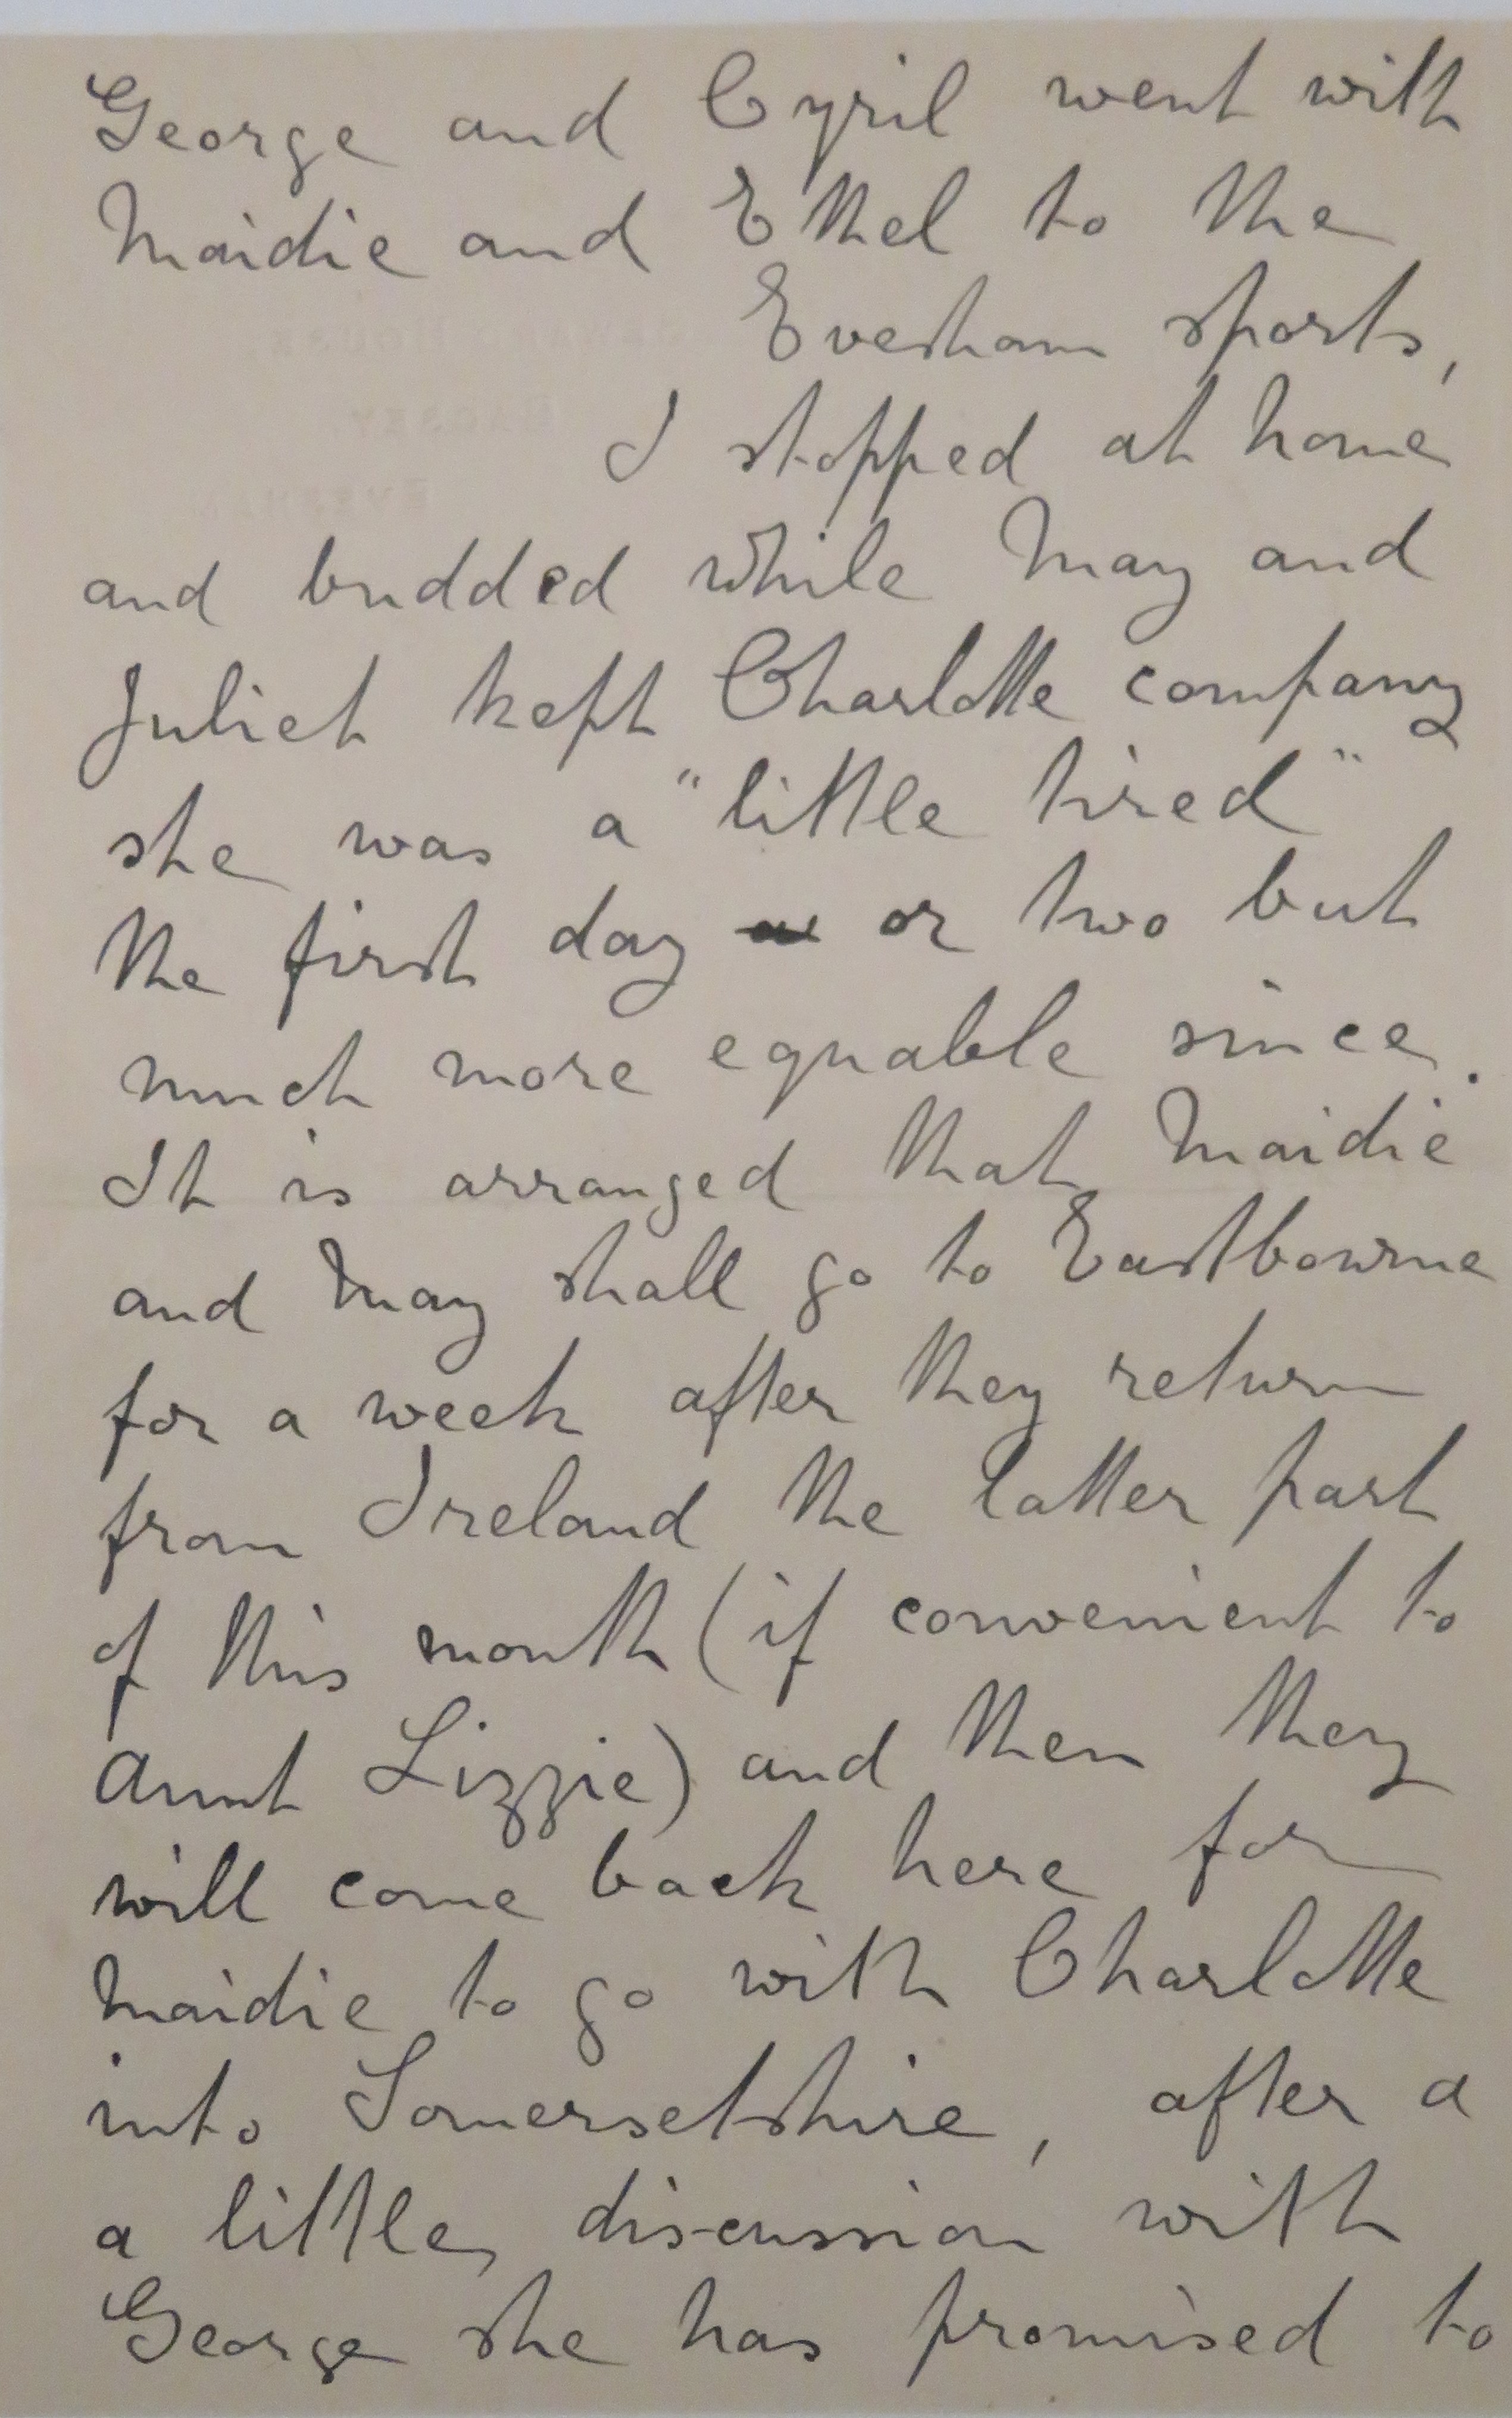 George and Cyril went with
Maidie and Ethel to the
Evesham sports,
I stopped at home
and budded while May and
Juliet kept Charlotte company
she was a "little tired"
the first day or two but
much more equable since.
It is arranged that Maidie
and May shall go to Eastbourne
for a week after they return
from Ireland the latter part
of this month (if convenient to
Aunt Lizzie) and then they
will come back here for
Maidie to go with Charlotte
into Somersetshire, after a
a little discussion with
George she has promised to